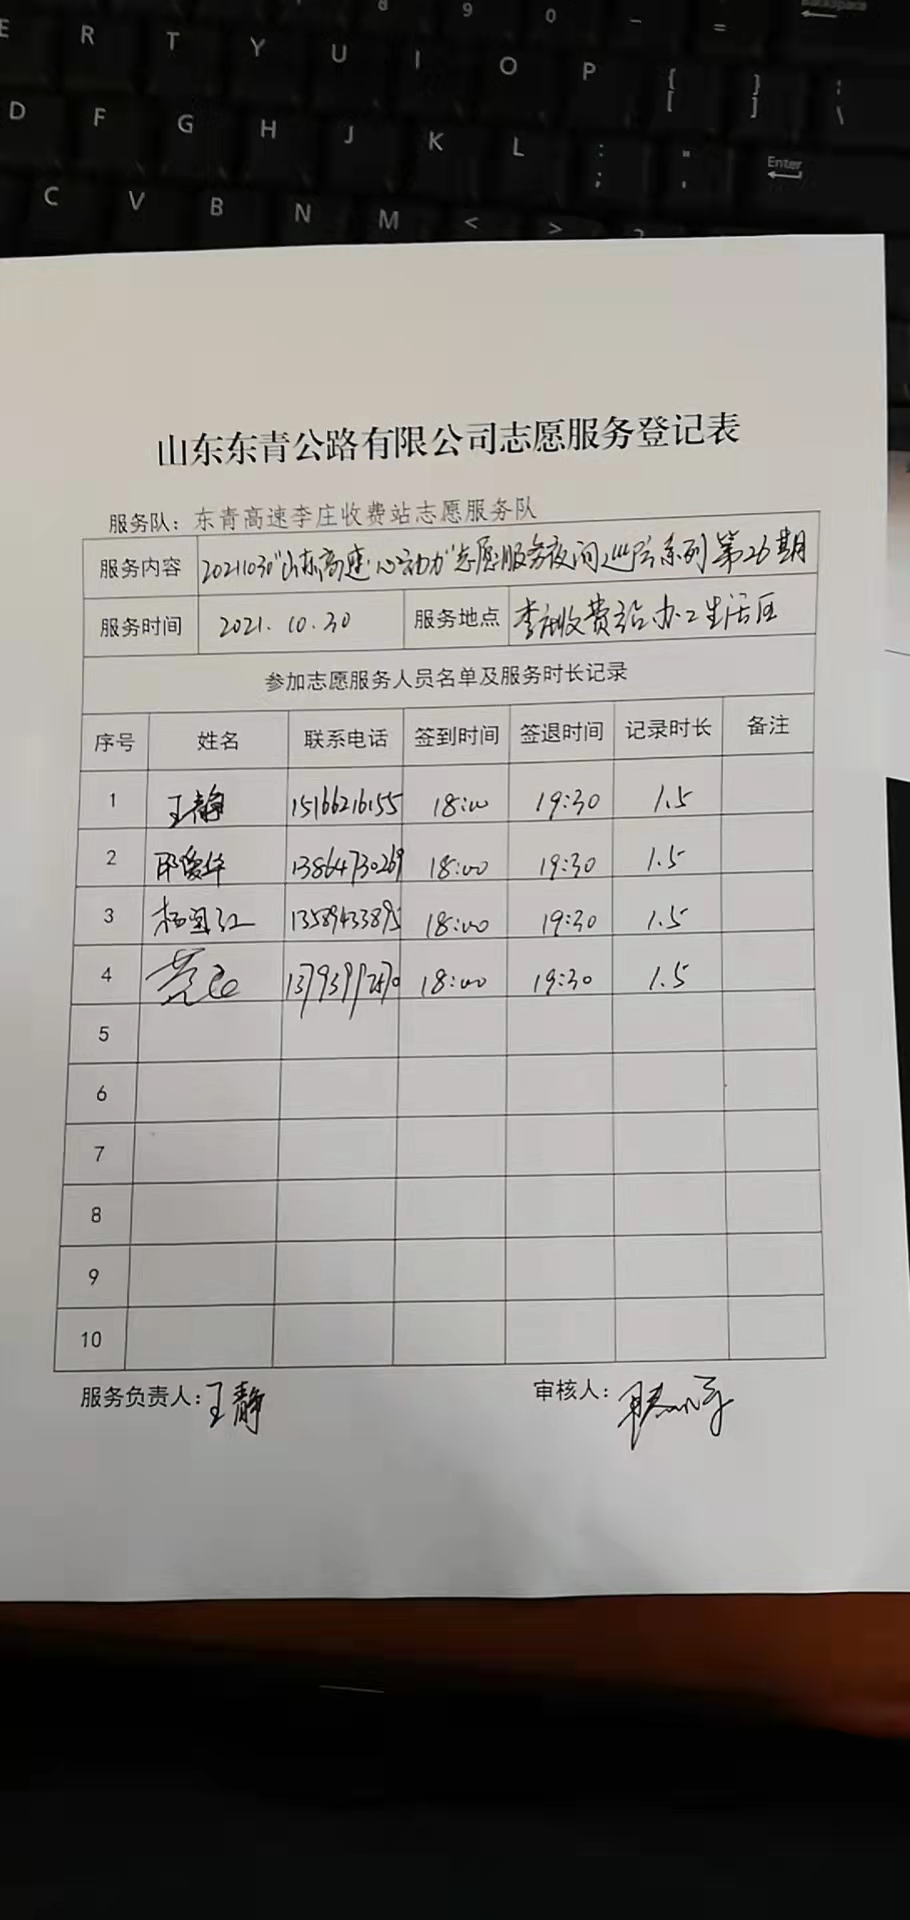 8 9 0 - =
Backspace
E R T Y U I O P { [ } ] | \
D F G H J K L : ; " ' Enter
C V B N M < > ?
山东东青公路有限公司志愿服务登记表
服务队：东青高速李庄收费站志愿服务队
服务内容 20211030"山东高速·心动力"志愿服务夜间巡音系列第26期
服务时间 2021.10.30 服务地点 李庄收费站办公生活区
参加志愿服务人员名单及服务时长记录
序号 姓名 联系电话 签到时间 签退时间 记录时长 备注
1 王静 15166216155 18:00 19:30 1.5
2 邢爱华 13864730269 18:00 19:30 1.5
3 杨国红 13589433895 18:00 19:30 1.5
4 18:00 19:30 1.5
5
6
7
8
9
10
服务负责人：王静 审核人：